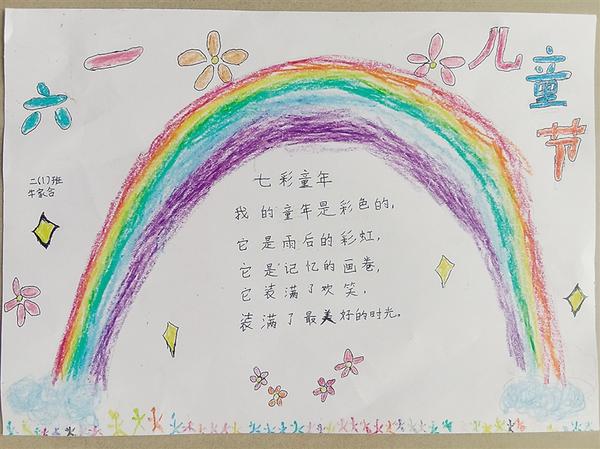 六一儿童节
二(1)班
牛家含
七彩童年
我的童年是彩色的,
它是雨后的彩虹,
它是记忆的画卷,
它装满了欢笑,
装满了最美好的时光。